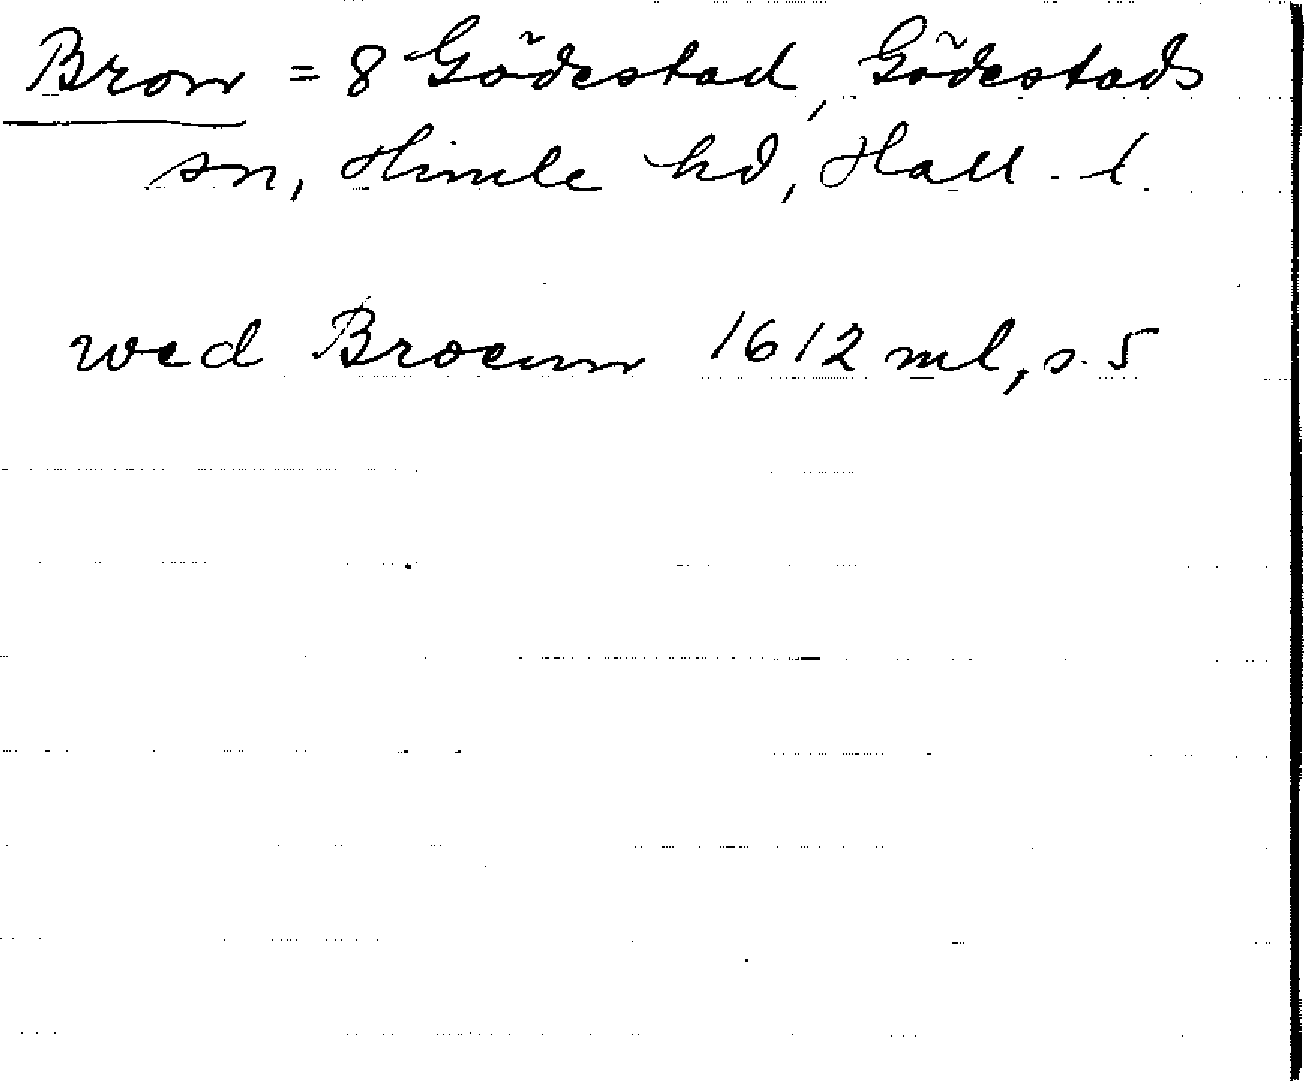 Bron = 8 Gödestad, Gödestads
sn, Himle hd, Hall. l.
wed Broenn 1612 ml, s. 5